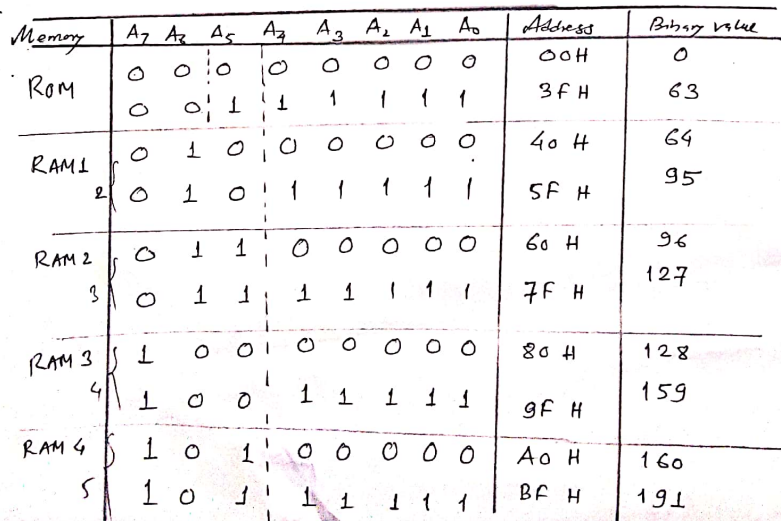 Memory A7 A6 A5 A4 A3 A2 A1 A0 Address Binary value
0 0 0 0 0 0 0 0 00H 0
ROM
0 0 1 1 1 1 1 1 3f H 63
RAM1 0 1 0 0 0 0 0 0 40 H 64
2 0 1 0 1 1 1 1 1 5F H 95
RAM 2 0 1 1 0 0 0 0 0 60 H 96
3 0 1 1 1 1 1 1 1 7F H 127
RAM 3 1 0 0 0 0 0 0 0 80 H 128
4 1 0 0 1 1 1 1 1 9F H 159
RAM 4 1 0 1 0 0 0 0 0 A0 H 160
5 1 0 1 1 1 1 1 1 BF H 191